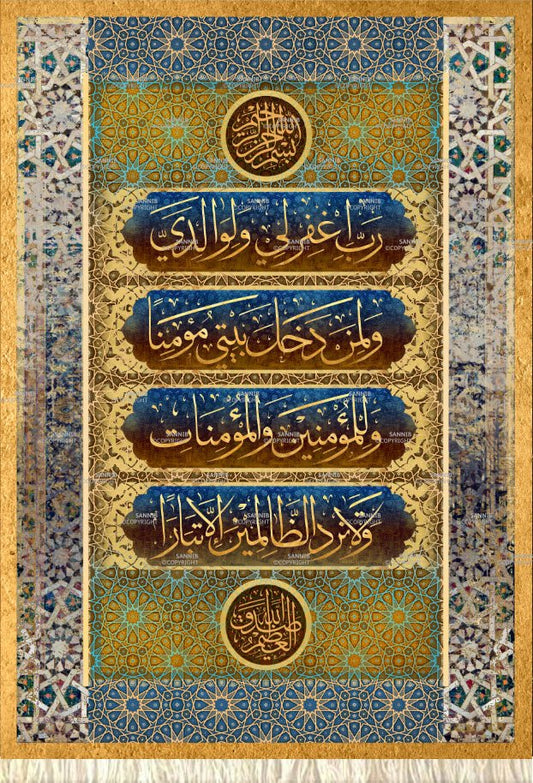 بسم الله الرحمن الرحيم
رَبِّ اغْفِرْ لِي وَلِوَالِدَيَّ
وَلِمَن دَخَلَ بَيْتِيَ مُؤْمِنًا
وَلِلْمُؤْمِنِينَ وَالْمُؤْمِنَاتِ
وَلَا تَزِدِ الظَّالِمِينَ إِلَّا تَبَارًا
صدق الله العظيم
SANNIB
©COPYRIGHT